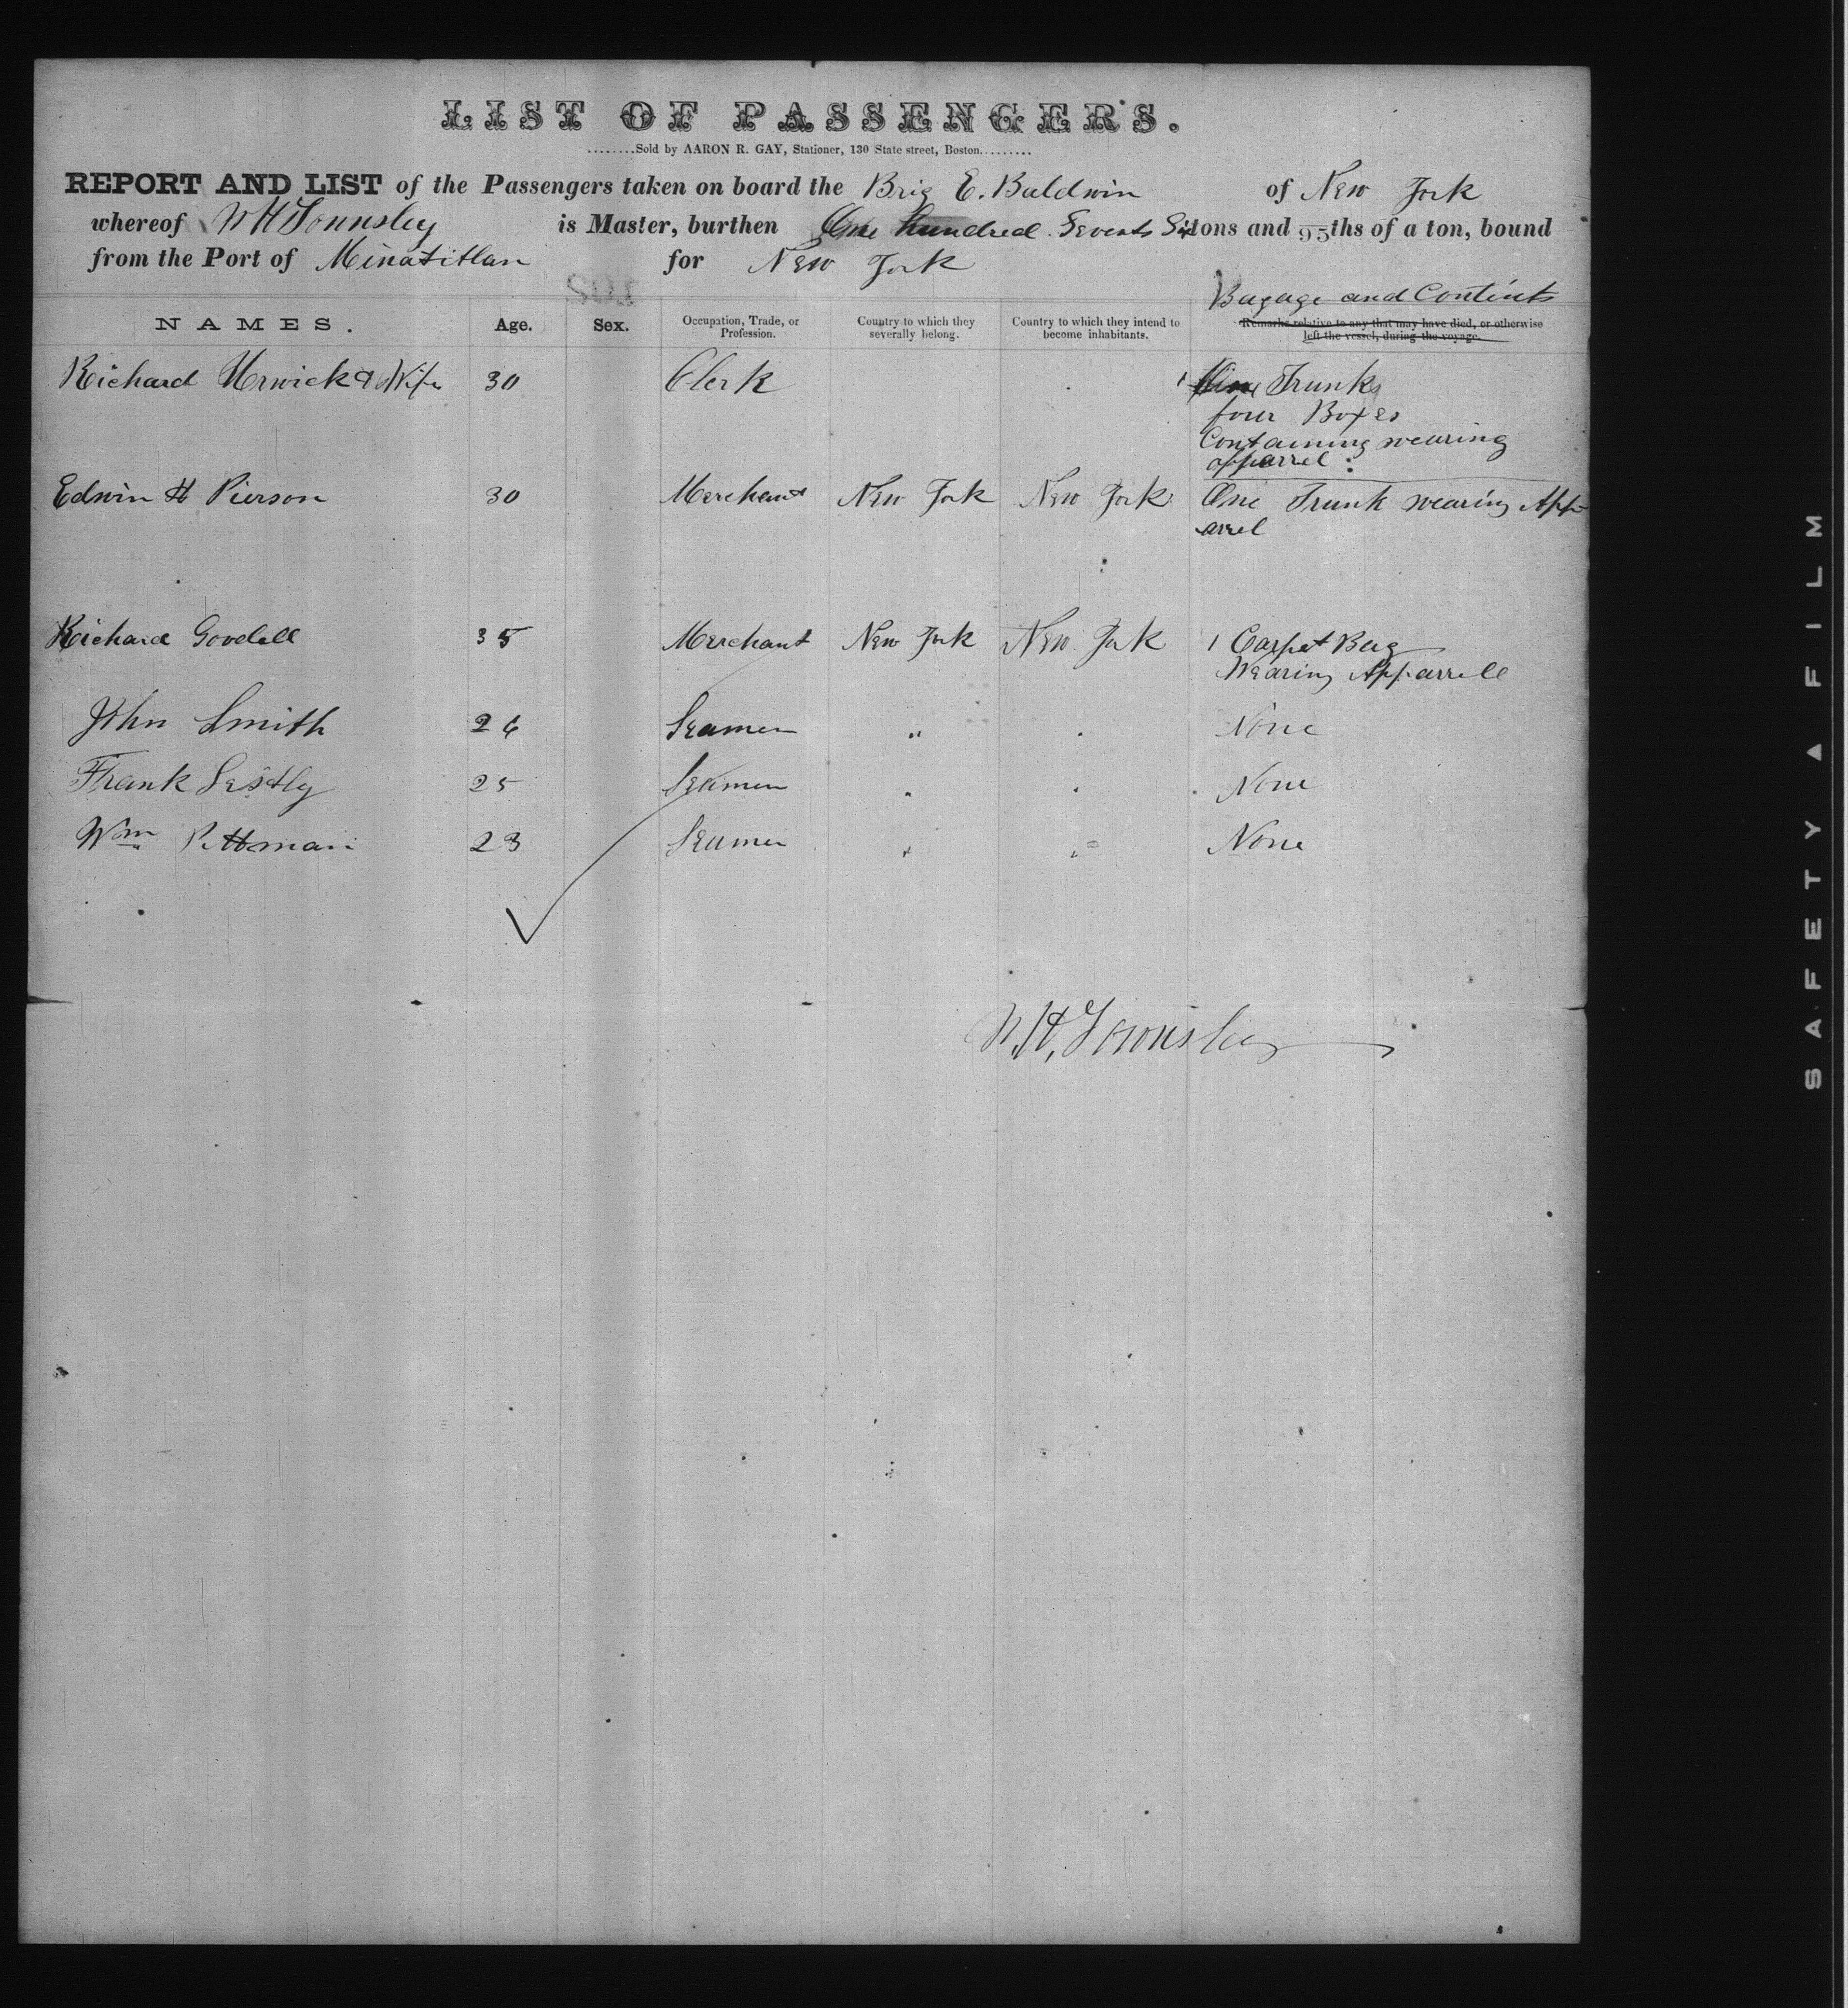 LIST OF PASSENGERS.
........Sold by AARON R. GAY, Stationer, 130 State street, Boston.........
REPORT AND LIST of the Passengers taken on board the Brig E. Baldwin of New York
whereof W H Townsley is Master, burthen One hundred Seventy Six tons and 95ths of a ton, bound
from the Port of Minatitlan for New York
Bagage and Contints
NAMES. Age. Sex. Occupation, Trade, or Profession. Country to which they severally belong. Country to which they intend to become inhabitants. Remarks relative to any that may have died, or otherwise left the vessel, during the voyage.
Richard & Wife 30 Clerk Trunks
four Boxes
Containing wearing
apparrel
Edwin H Pierson 30 Merchant New York New York One Trunk wearing App-
arrel
Richard Goodell 35 Merchant New York New York 1 Carpet Bag
Wearing Apparrell
John Smith 26 Seamen " " None
Frank 25 Seamen " " None
Wm Pittman 23 Seamen " " None
W.H. Townsley
SAFETY ▲ FILM